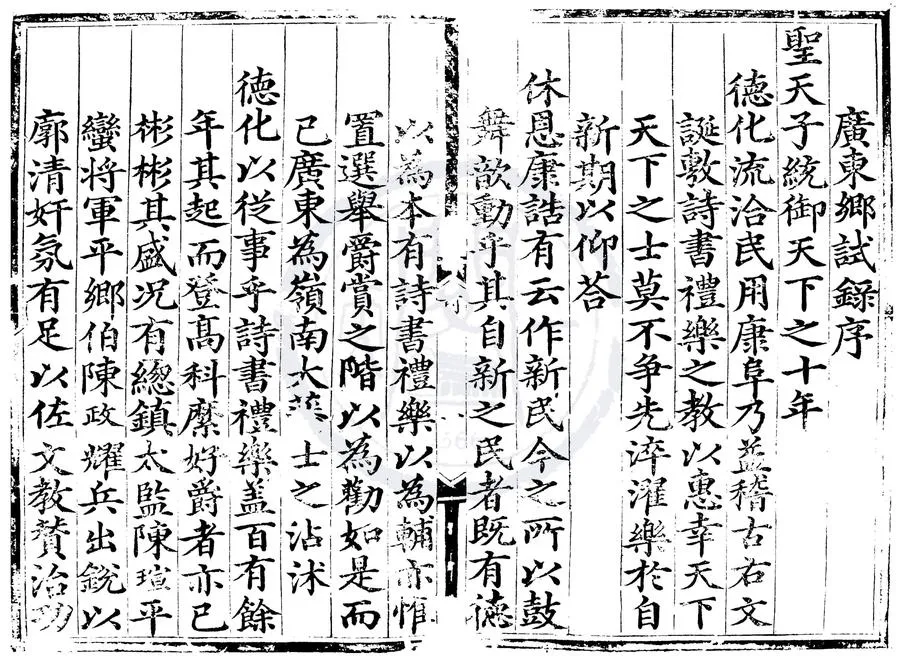 廣東鄉試錄序
聖天子統御天下之十年
德化流洽民用康阜乃益稽古右文
誕敷詩書禮樂之教以惠幸天下
天下之士莫不爭先淬濯樂於自
新期以仰荅
休恩康誥有云作新民今之所以鼓
舞歆動乎其自新之民者既有德
以為本有詩書禮樂以為輔亦惟
置選舉爵賞之階以為勸如是而
已廣東為嶺南大藩士之沾沐
德化以從事乎詩書禮樂盖百有餘
年其起而登髙科縻好爵者亦已
彬彬其盛况有總鎮太監陳瑄平
蠻将軍平鄉伯陳政耀兵出銳以
廓清奸氛有足以佐文教賛治功